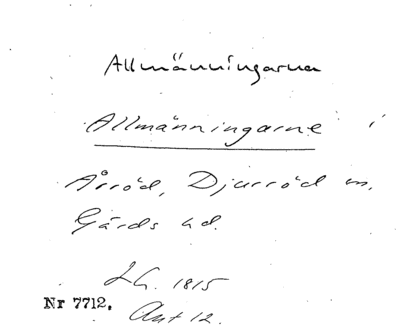 Allmänningarna
Allmänningarne i
Årröd, Djurröd m.
Gärds hd.
LG. 1815
Nr 7712.
Akt 12.